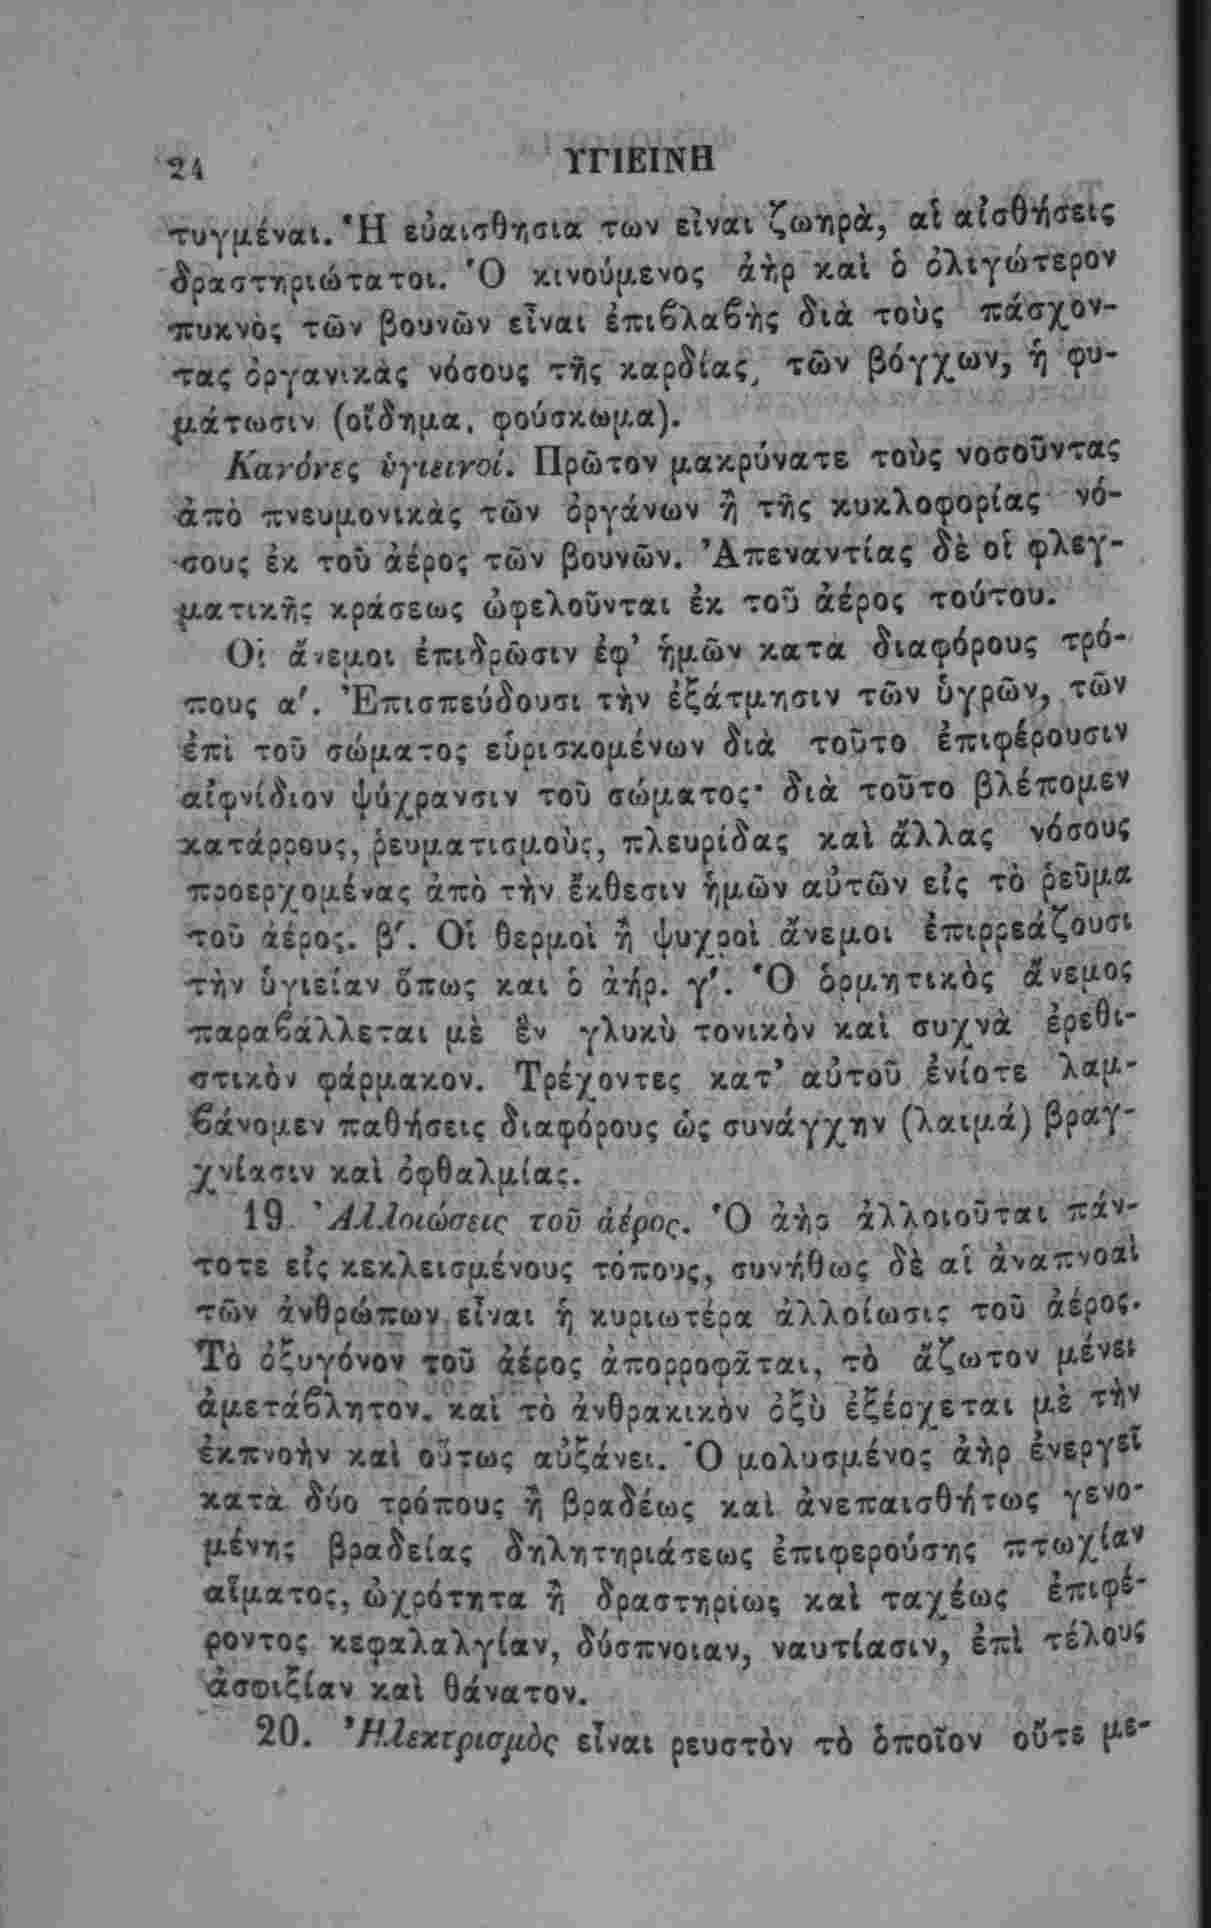 24 ΥΓΙΕΙΝΗ
τυγμέναι. Ἡ εὐαισθησια των εἶναι ζωηρὰ, αἱ αἰσθήσεις
δραστηριώτατοι. Ὁ κινούμενος ἀὴρ καὶ ὁ ὀλιγώτερον
πυκνὸς τῶν βουνῶν εἶναι ἐπιβλαβὴς διὰ τοὺς πάσχον-
τας ὀργανικὰς νόσους τῆς καρδίας, τῶν βόγχων, ἡ φυ-
μάτωσιν (οἴδημα, φούσκωμα).
Κανόνες ὑγιεινοί. Πρῶτον μακρύνατε τοὺς νοσοῦντας
ἀπὸ πνευμονικὰς τῶν ὀργάνων ἢ τῆς κυκλοφορίας νό-
σους ἐκ τοῦ ἀέρος τῶν βουνῶν. Ἀπεναντίας δὲ οἱ φλεγ-
ματικῆς κράσεως ὠφελοῦνται ἐκ τοῦ ἀέρος τούτου.
Οἱ ἄνεμοι ἐπιδρῶσιν ἐφ’ ἡμῶν κατὰ διαφόρους τρό-
πους α′. Ἐπισπεύδουσι τὴν ἐξάτμησιν τῶν ὑγρῶν, τῶν
ἐπὶ τοῦ σώματος εὑρισκομένων διὰ τοῦτο ἐπιφέρουσιν
αἰφνίδιον ψύχρανσιν τοῦ σώματος· διὰ τοῦτο βλέπομεν
κατάρρους, ῥευματισμοὺς, πλευρίδας καὶ ἄλλας νόσους
προερχομένας ἀπὸ τὴν ἔκθεσιν ἡμῶν αὐτῶν εἰς τὸ ῥεῦμα
τοῦ ἀέρος. β′. Οἱ θερμοὶ ἢ ψυχροὶ ἄνεμοι ἐπιρρεάζουσι
τὴν ὑγιείαν ὅπως και ὁ ἀήρ. γ′. Ὁ ὁρμητικὸς ἄνεμος
παραβάλλεται μὲ ἓν γλυκὺ τονικὸν καὶ συχνὰ ἐρεθι-
στικὸν φάρμακον. Τρέχοντες κατ’ αὐτοῦ ἐνίοτε λαμ-
βάνομεν παθήσεις διαφόρους ὡς συνάγχην (λαιμά) βραγ-
χνίασιν καὶ ὀφθαλμίας.
19. Ἀλλοιώσεις τοῦ ἀέρος. Ὁ ἀὴρ ἀλλοιοῦται πάν-
τοτε εἰς κεκλεισμένους τόπους, συνήθως δὲ αἱ ἀναπνοαὶ
τῶν ἀνθρώπων εἶναι ἡ κυριωτέρα ἀλλοίωσις τοῦ ἀέρος.
Τὸ ὀξυγόνον τοῦ ἀέρος ἀπορροφᾶται, τὸ ἄζωτον μένει
ἀμετάβλητον. καὶ τὸ ἀνθρακικὸν ὀξὺ ἐξέρχεται μὲ τὴν
ἐκπνοὴν καὶ οὕτως αὐξάνει. Ὁ μολυσμένος ἀὴρ ἐνεργεῖ
κατὰ δύο τρόπους ἢ βραδέως καὶ ἀνεπαισθήτως γενο-
μένης βραδείας δηλητηριάσεως ἐπιφερούσης πτωχίαν
αἵματος, ὠχρότητα ἢ δραστηρίως καὶ ταχέως ἐπιφέ-
ροντος κεφαλαλγίαν, δύσπνοιαν, ναυτίασιν, ἐπὶ τέλους
ἀσφιξίαν καὶ θάνατον.
20. Ἠλεκτρισμὸς εἶναι ρευστὸν τὸ ὁποῖον οὔτε με-